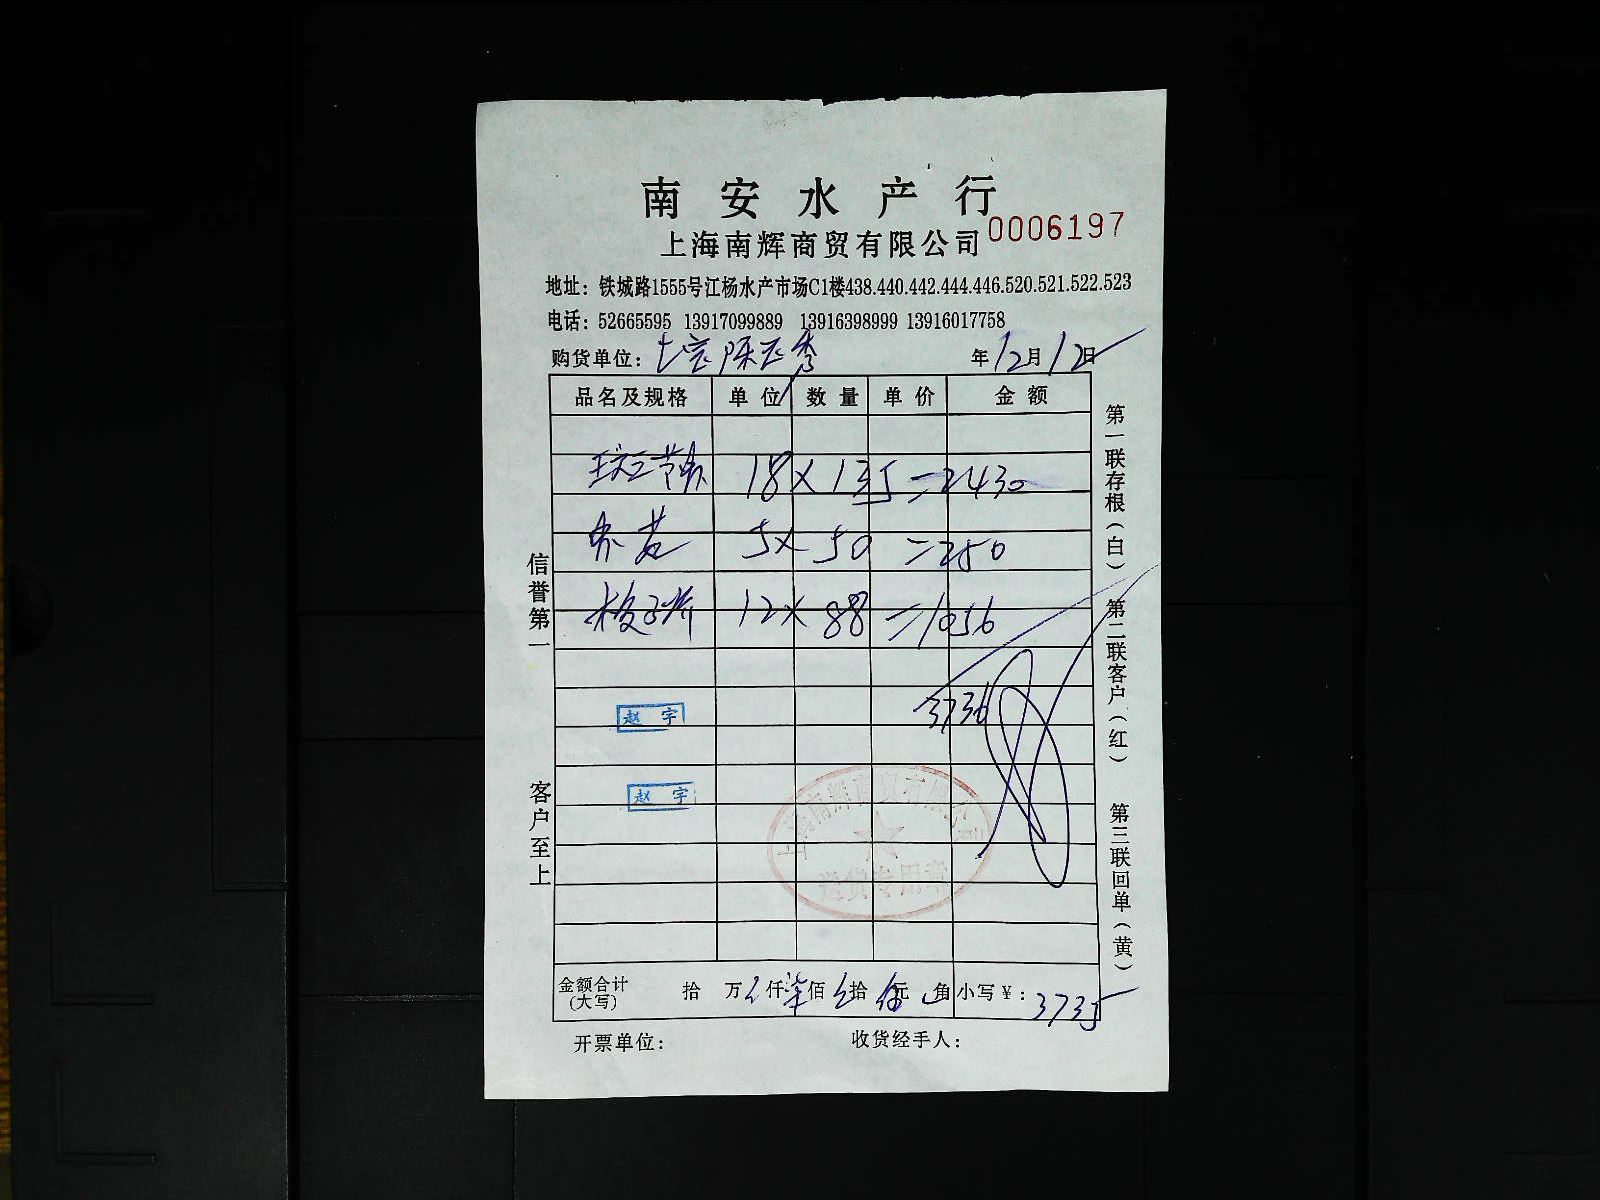 南安水产行
0006197
上海南辉商贸有限公司
地址：铁城路1555号江杨水产市场C1楼438.440.442.444.446.520.521.522.523
电话：52665595 13917099889 13916398999 13916017758
购货单位： 年12月12日
品名及规格 单位 数量 单价 金额
18×135=2430
5×50=250
12×88=1056
3736
赵宇
赵宇
上海南辉商贸有限公司
送货专用章
金额合计(大写) 拾 万 仟柒佰 拾 伍元 角 小写￥：3735
开票单位： 收货经手人：
信誉第一 客户至上
第一联存根（白） 第二联客户（红） 第三联回单（黄）